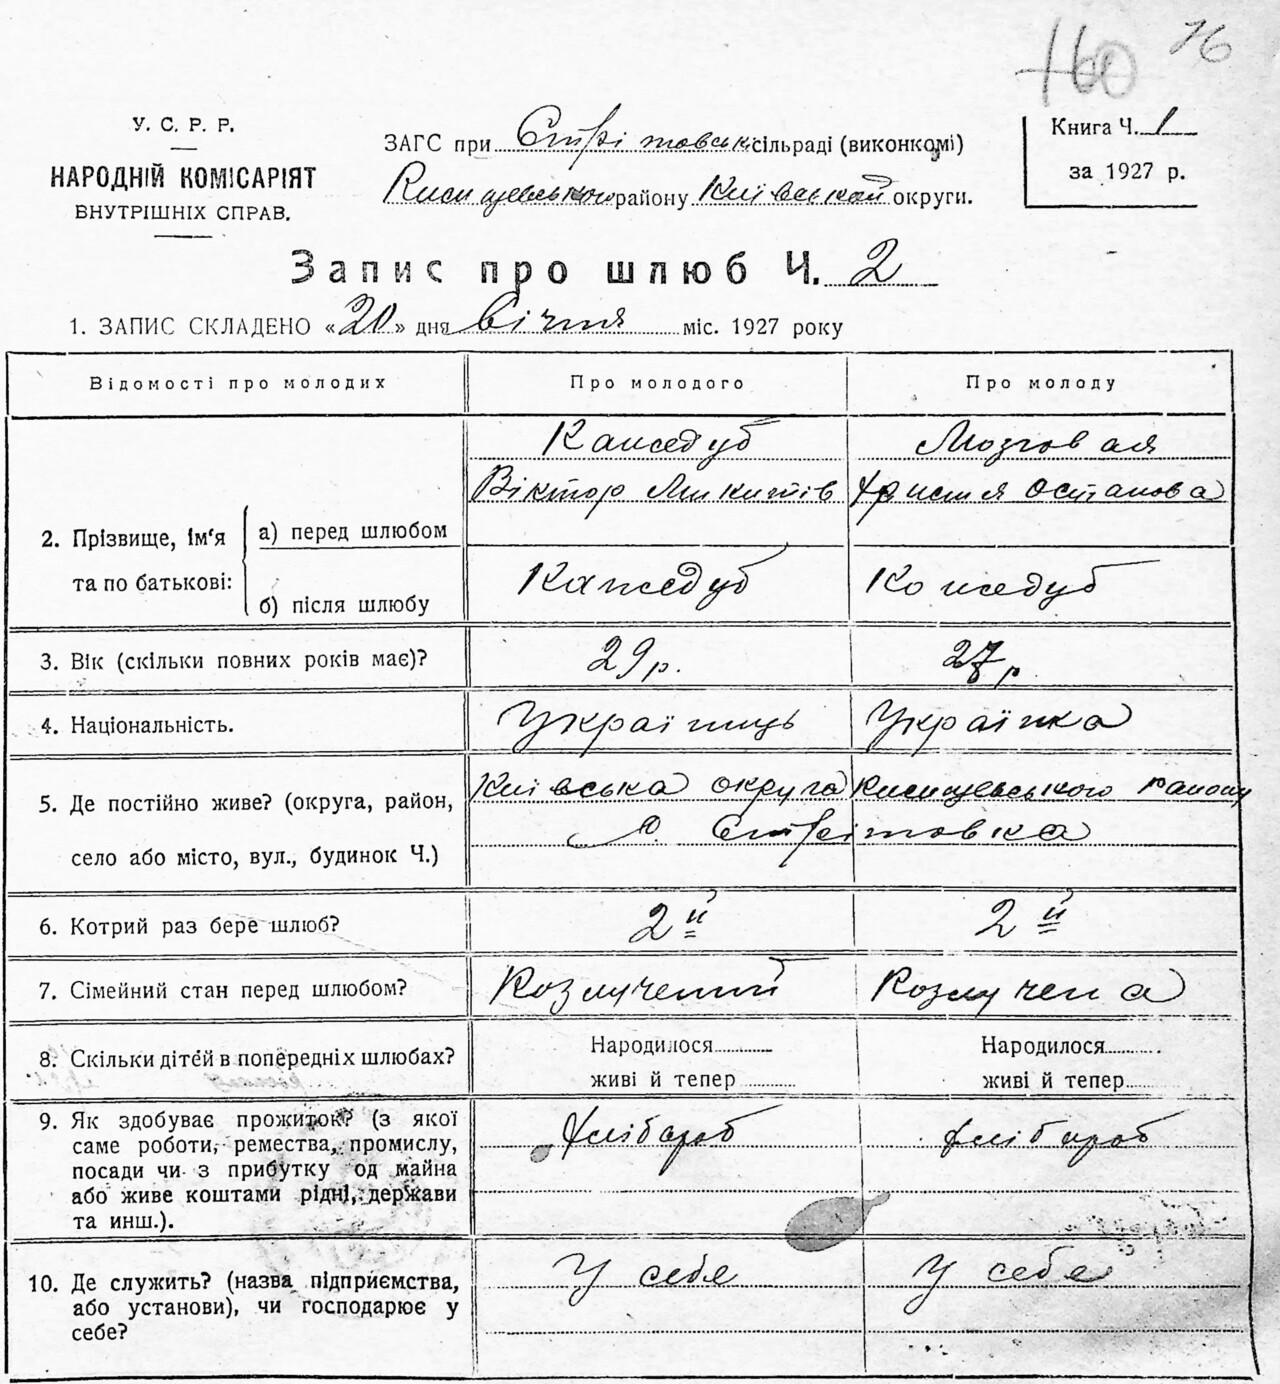 160 76
У. С. Р. Р.
НАРОДНІЙ КОМІСАРІЯТ
ВНУТРІШНІХ СПРАВ.
ЗАГС при Стрітовськ сільраді (виконкомі)
Кисищевського району Київськой округи.
Книга Ч. 1
за 1927 р.
Запис про шлюб Ч. 2
1. ЗАПИС СКЛАДЕНО «20» дня Січня міс. 1927 року
Відомості про молодих Про молодого Про молоду
2. Прізвище, ім'я та по батькові:
а) перед шлюбом Кажедуб Мозговая
Віктор Микитів Христя Остапова
б) після шлюбу Кажедуб Кожедуб
3. Вік (скільки повних років має)? 29 р. 27 р
4. Національність. Українць Українка
5. Де постійно живе? (округа, район, Київська округа Кисищевського району
село або місто, вул., будинок Ч.) с. Стрітовка
6. Котрий раз бере шлюб? 2й 2й
7. Сімейний стан перед шлюбом? Розлучений Розлучена
8. Скільки дітей в попередніх шлюбах? Народилося Народилося
живі й тепер живі й тепер
9. Як здобуває прожиток? (з якої Хлібароб Хлібароб
саме роботи, ремества, промислу,
посади чи з прибутку од майна
або живе коштами рідні, держави
та инш.).
10. Де служить? (назва підприємства, У себе У себе
або установи), чи господарює у
себе?